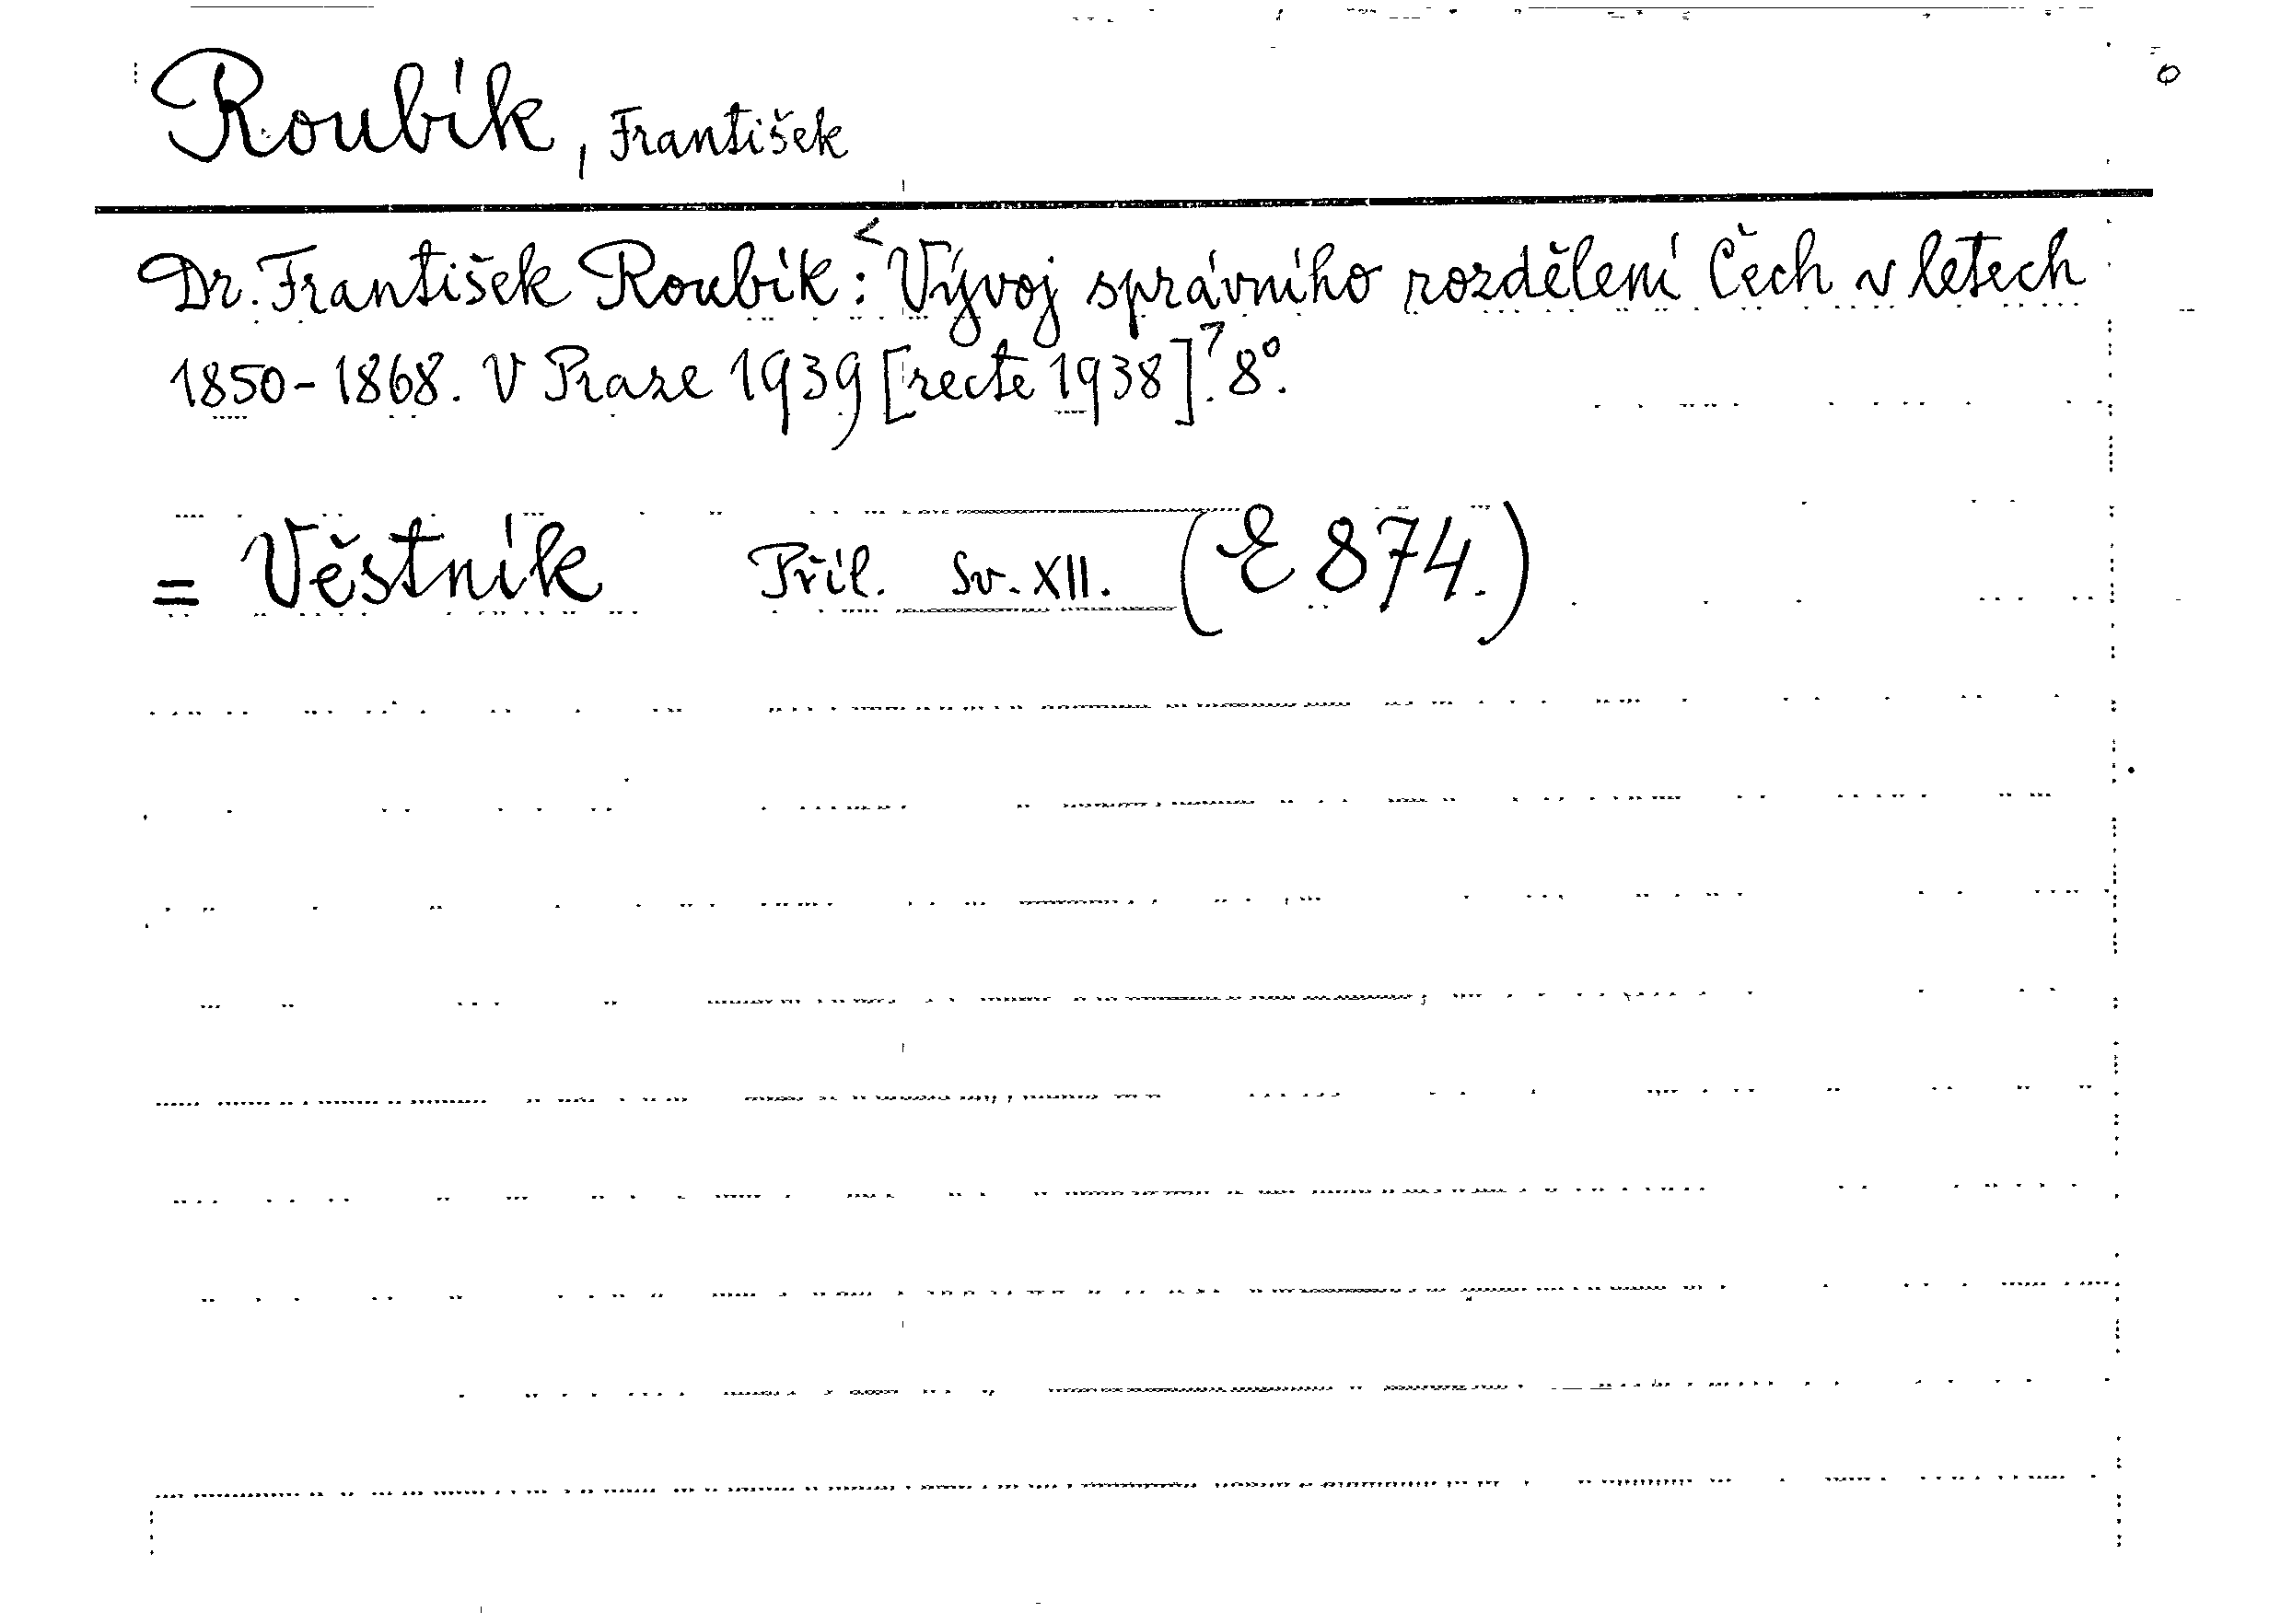 Roubík, František
Dr. František Roubík: <Vývoj správního rozdělení Čech v letech
1850-1868. V Praze 1939 [recte 1938].> 8º.
= Věstník Příl. Sv. XII. (E 874.)